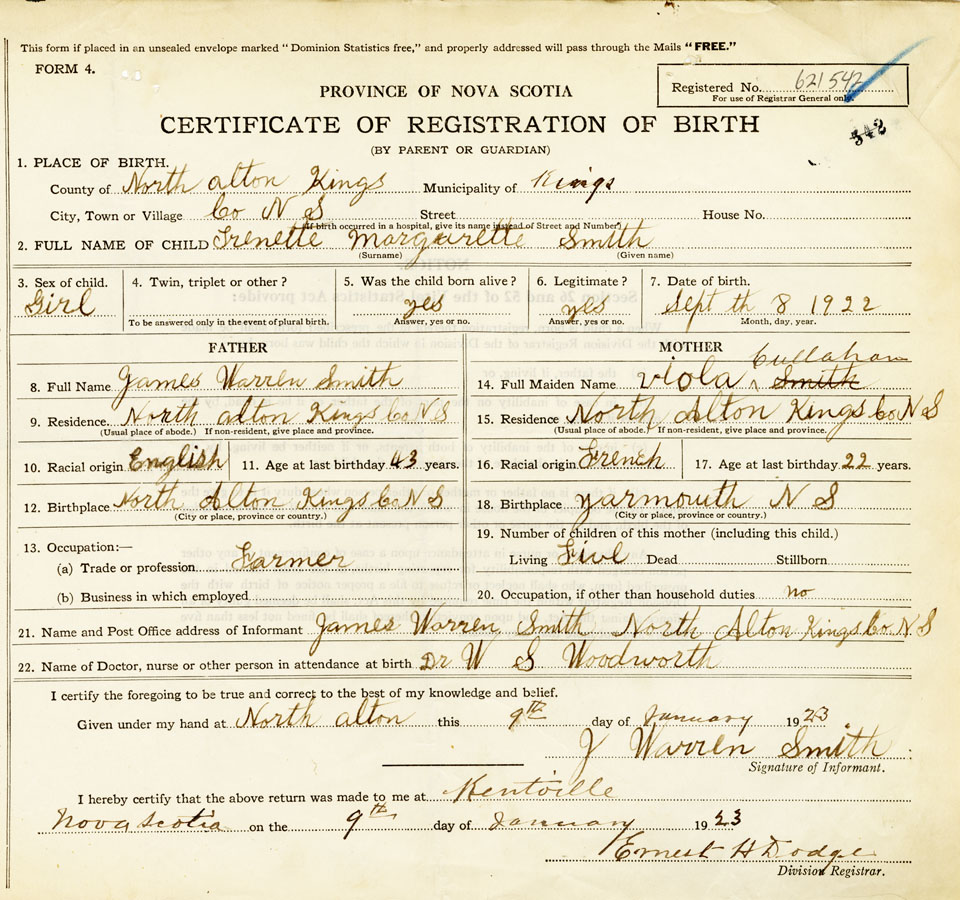 This form if placed in an unsealed envelope marked "Dominion Statistics free," and properly addressed will pass through the Mails "FREE."
FORM 4.
Registered No. 621542
For use of Registrar General only.
PROVINCE OF NOVA SCOTIA
542
CERTIFICATE OF REGISTRATION OF BIRTH
(BY PARENT OR GUARDIAN)
1. PLACE OF BIRTH.
County of North alton Kings Municipality of Kings
City, Town or Village Co N S Street House No.
(If birth occurred in a hospital, give its name instead of Street and Number)
2. FULL NAME OF CHILD Irenette Margarette Smith
(Surname) (Given name)
3. Sex of child. 4. Twin, triplet or other? 5. Was the child born alive? 6. Legitimate? 7. Date of birth.
Girl yes yes Sept th 8 1922
To be answered only in the event of plural birth. Answer, yes or no. Answer, yes or no. Month, day, year.
FATHER MOTHER
8. Full Name James Warren Smith 14. Full Maiden Name Viola Smith Cullahan
9. Residence. North alton Kings Co N S 15. Residence North Alton Kings Co N S
(Usual place of abode.) If non-resident, give place and province. (Usual place of abode.) If non-resident, give place and province.
10. Racial origin English 11. Age at last birthday 43 years. 16. Racial origin French 17. Age at last birthday. 22 years.
12. Birthplace North Alton Kings Co N S 18. Birthplace Yarmouth N S
(City or place, province or country.) (City or place, province or country.)
13. Occupation:— 19. Number of children of this mother (including this child.)
(a) Trade or profession Farmer Living Five Dead Stillborn
(b) Business in which employed 20. Occupation, if other than household duties no
21. Name and Post Office address of Informant James Warren Smith North Alton Kings Co. N S
22. Name of Doctor, nurse or other person in attendance at birth Dr W S Woodworth
I certify the foregoing to be true and correct to the best of my knowledge and belief.
Given under my hand at North alton this 9th day of January 1923.
J Warren Smith
Signature of Informant.
I hereby certify that the above return was made to me at Kentville
Nova Scotia on the 9th day of January 1923
Ernest H Dodge
Division Registrar.